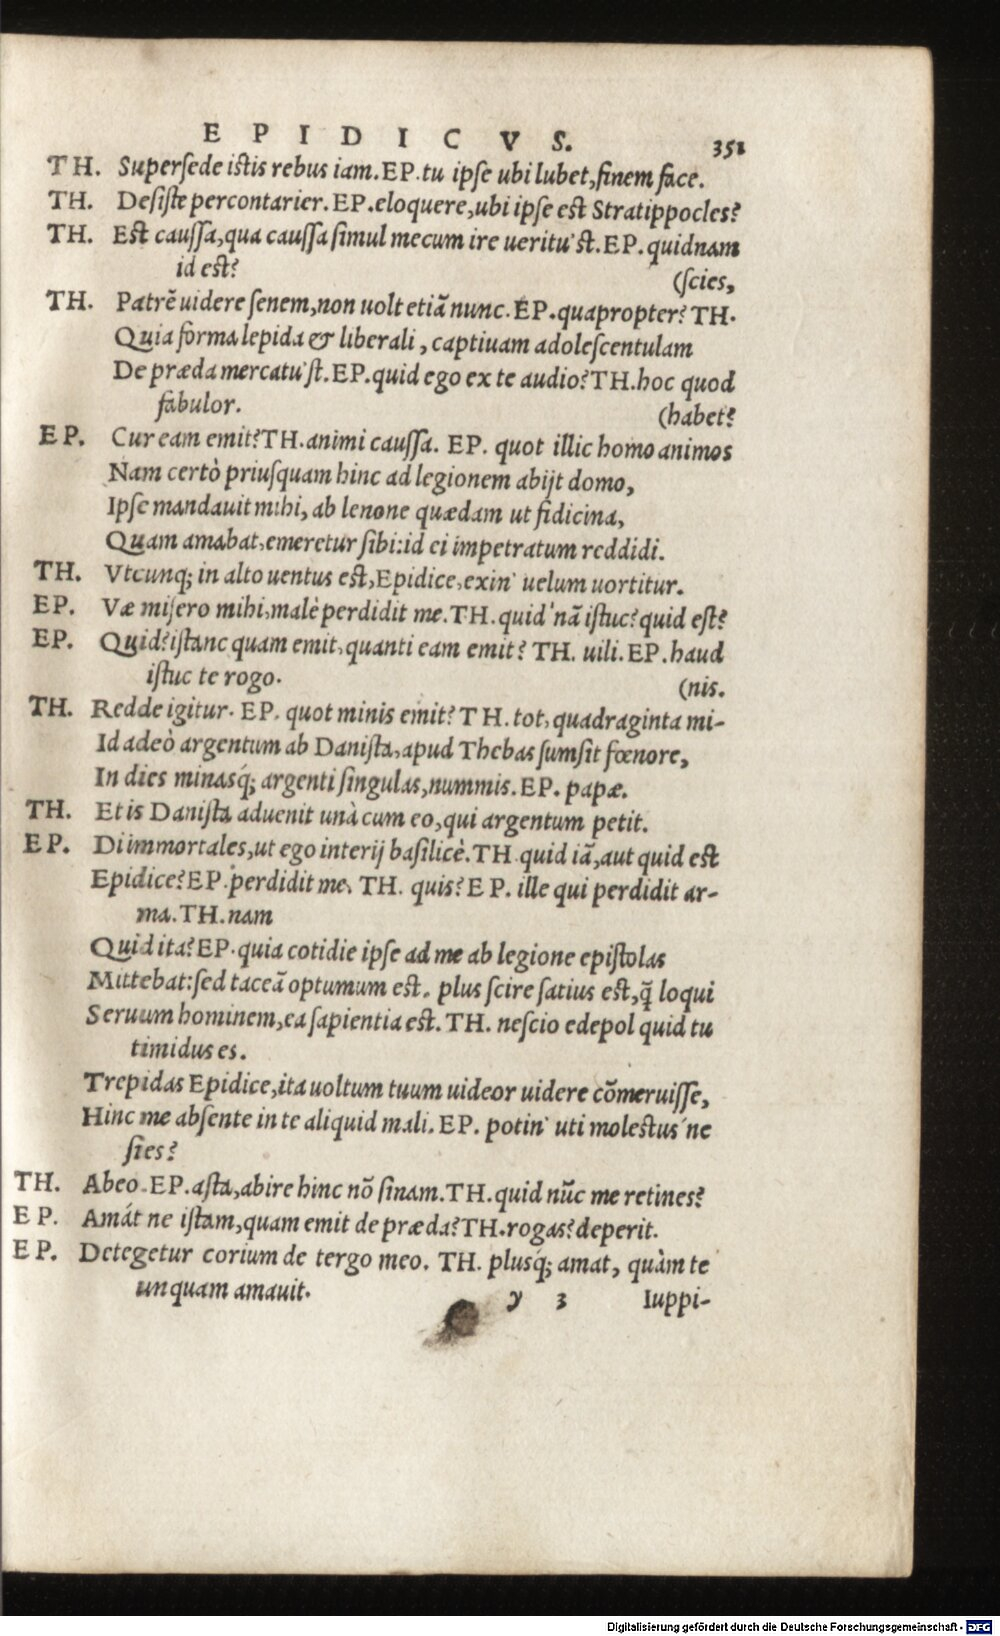 EPIDICVS. 351
TH. Superſede iſtis rebus iam. EP. tu ipſe ubi lubet, finem face.
TH. Deſiſte percontarier. EP. eloquere, ubi ipſe eſt Stratippocles?
TH. Eſt cauſſa, qua cauſſa ſimul mecum ire ueritu'ſt. EP. quidnam
id eſt? (ſcies,
TH. Patrẽ uidere ſenem, non uolt etiã nunc. EP. quapropter? TH.
Quia forma lepida & liberali, captiuam adoleſcentulam
De præda mercatu'ſt. EP. quid ego ex te audio? TH. hoc quod
fabulor. (habet?
EP. Cur eam emit? TH. animi cauſſa. EP. quot illic homo animos
Nam certò priuſquam hinc ad legionem abijt domo,
Ipſe mandauit mihi, ab lenone quædam ut fidicina,
Quam amabat, emeretur ſibi: id ei impetratum reddidi.
TH. Vtcunq; in alto uentus eſt, Epidice, exin' uelum uortitur.
EP. Væ miſero mihi, malè perdidit me. TH. quid'nã iſtuc? quid eſt?
EP. Quid? iſtanc quam emit, quanti eam emit? TH. uili. EP. haud
iſtuc te rogo. (nis.
TH. Redde igitur. EP. quot minis emit? TH. tot, quadraginta mi-
Id adeò argentum ab Daniſta, apud Thebas ſumſit fœnore,
In dies minasq́; argenti ſingulas, nummis. EP. papæ.
TH. Et is Daniſta aduenit unà cum eo, qui argentum petit.
EP. Di immortales, ut ego interij baſilicè. TH. quid iã, aut quid eſt
Epidice? EP. perdidit me. TH. quis? EP. ille qui perdidit ar-
ma. TH. nam
Quid ita? EP. quia cotidie ipſe ad me ab legione epiſtolas
Mittebat: ſed taceã optumum eſt. plus ſcire ſatius eſt, q̃ loqui
Seruum hominem, ea ſapientia eſt. TH. neſcio edepol quid tu
timidus es.
Trepidas Epidice, ita uoltum tuum uideor uidere cõmeruiſſe,
Hinc me abſente in te aliquid mali. EP. potin' uti moleſtus ne
ſies?
TH. Abeo. EP. aſta, abire hinc nõ ſinam. TH. quid nũc me retines?
EP. Amát ne iſtam, quam emit de præda? TH. rogas? deperit.
EP. Detegetur corium de tergo meo. TH. plusq́; amat, quàm te
unquam amauit.
y 3 Iuppi-
Digitalisierung gefördert durch die Deutsche Forschungsgemeinschaft - DFG